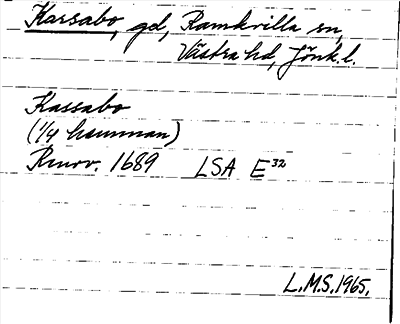 Karsabo, gd, Ramkvilla sn,
Västra hd, Jönk. l.
Kassabo
(1/4 hemman)
Rmov. 1689 LSA E32
L.M.S. 1965.